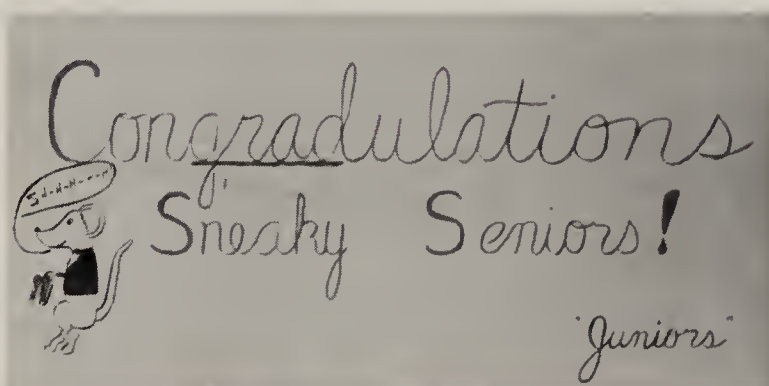 Congradulations
S-H-H-H-H-H
Sneaky Seniors!
"Juniors"